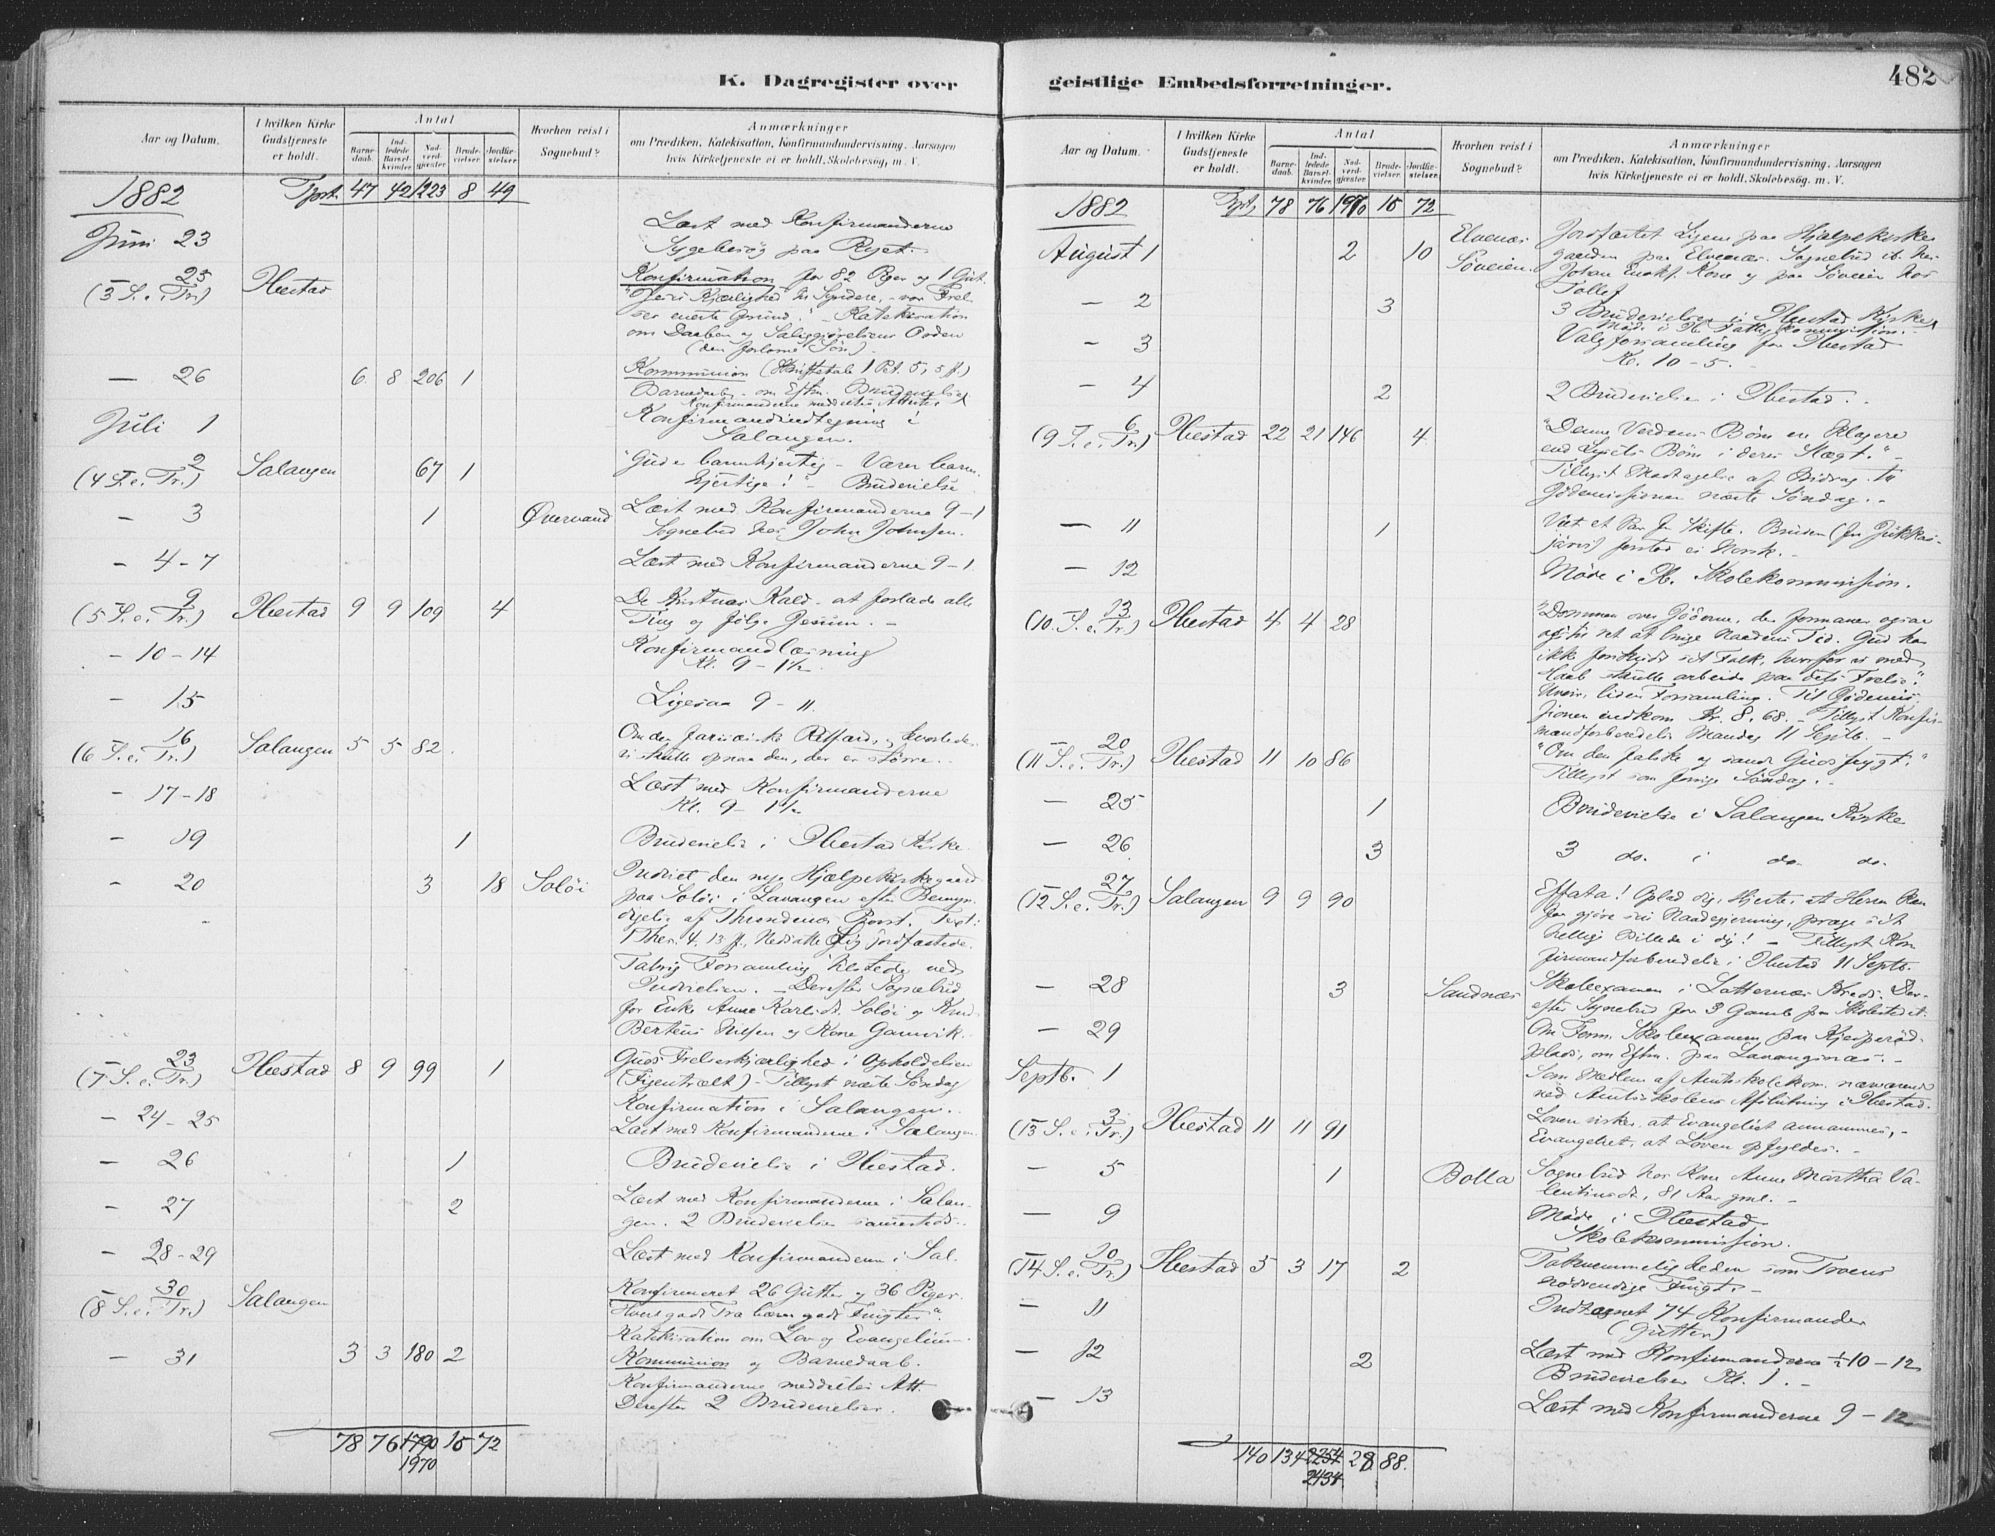 K. Dagregister over
Aar og Datum.
I hvilken Kirke Gudstjeneste er holdt.
Antal
Barnedaab.
Indledede Barselkvinder.
Nadverdgjæster
Brudevielser
Jordfæstelser
Hvorhen reist i Sognebud?
Anmærkninger
om Prædiken, Katekisation, Konfirmandundervisning, Aarsagen
hvis Kirketjeneste ei er holdt, Skolebesøg, m. V.
1882 Tpört. 47 42 1223 8 49
Juni 23 Læst med Konfirmanderne
Sygebesøg paa
25 (3 S. e. Tr.) Ibestad Konfirmation for 82 Piger og 1 Gut.
"Jesu Kjærlighed til Syndere, – vor Frel-
ses eneste Grund." – Katekisation
om Daaben og Saliggjørelsens Orden
(den forlorne Søn).
– 26 6 8 206 1 Kommunion (Skriftetale 1 Pet. 5, 5 f.)
Barnedaab – om Eftm. Brudevielse
Konfirmanderne meddeltes Attester
Juli 1 Konfirmandindtegning i
Salangen.
2 (4 S. e. Tr.) Salangen 67 1 "Gud er barmhjertig – Værer barm-
hjertige!" – Brudevielse
– 3 1 Øvervand Læst med Konfirmanderne 9–1
Sognebud hos John Johnsen.
– 4–7 Læst med Konfirmanderne 9–1
9 (5 S. e. Tr.) Ibestad 9 9 109 4 De Kristnes Kald – at forlade alle
Ting og følge Jesum. –
– 10–14 Konfirmandlæsning
Kl. 9–1½.
– 15 Ligesaa 9–11.
16 (6 S. e. Tr.) Salangen 5 5 82. Om den farisæiske Retfærd, og hvorledes
vi skulle opnaa den, der er større.
– 17–18 Læst med Konfirmanderne
Kl. 9–1½
– 19 1 Brudevielse i Ibestad Kirke.
– 20 3 18 Soløi Indviet den nye Hjælpekirkegaard
paa Soløi i Lavangen efter Bemyn-
digelse af Throndenæs Provst. Text:
1 Thes. 4, 13 f. Nedsatte Lig jordfæstede.
Talrig Forsamling tilstede ved
Indvielsen. – Derefter Sognebud
for Enke Anne Karlsd. Soløi og Knud
Berteus Nilsen og Kone Gamvik.
23 (7 S. e. Tr.) Ibestad 8 9 99 1 Guds Frelserkjærlighed i Opholdelsen
(Figentræet) – Tillyst næste Søndag
Konfirmation i Salangen.
– 24–25 Læst med Konfirmanderne i Salangen
– 26 1 Brudevielse i Ibestad.
– 27 2 Læst med Konfirmanderne i Salan-
gen. 2 Brudevielser sammesteds.
– 28–29 Læst med Konfirmanderne i Sal.
30 (8 S. e. Tr.) Salangen Konfirmeret 26 Gutter og 36 Piger.
"Hvert godt Træ bærer gode Frugter".
Katekisation om Lov og Evangelium
– 31 3 3 180 2 Kommunion og Barnedaab.
Konfirmanderne meddeltes Att.
Derefter 2 Brudevielser.
78 76 1790 15 72
1970
geistlige Embedsforretninger.
482
Aar og Datum.
I hvilken Kirke Gudstjeneste er holdt.
Antal
Barnedaab.
Indledede Barselkvinder.
Nadverdgjæster
Brudevielser.
Jordfæstelser.
Hvorhen reist i Sognebud?
Anmærkninger
om Prædiken, Katekisation, Konfirmandundervisning, Aarsagen
hvis Kirketjeneste ei er holdt, Skolebesøg, m. V.
1882 Tpört. 78 76 1970 15 72
August 1 2 10 Elvenæs Søveien Jordfæstet Ligene paa Hjælpekirke-
gaarden paa Elvenæs. Sognebud ib. hos
Johan Kone og paa Søveien hos
– 2 3 3 Brudevielser i Ibestad Kirke
Møde i Ib. Fattigkommission.
– 3 Valgforsamling for Ibestad
Kl. 10–5.
– 4 2 2 Brudevielser i Ibestad.
6 (9 S. e. Tr.) Ibestad 22 21 146 4 "Denne Verdens Børn ere klogere
end Lysets Børn i deres Slægt." –
Tillyst Modtagelse af Bidrag til
Jødemissionen næste Søndag. –
– 11 1 Viet et Par Skifte. Bruden (fra Jukkas-
järvi) forstod ei Norsk. –
– 12 Møde i Ib. Skolekommission.
13 (10. S. e. Tr.) Ibestad 4 4 28 "Dommen over Jøderne, den formaner ogsaa
os til ret at bruge Naadens Tid. Gud har
ikke forskudt sit Folk, hvorfor vi med
Haab skulle arbeide paa dets Frelse."
liden Forsamling. Til Jødemis-
sionen indkom Kr. 8,68. – Tillyst Konfir-
mandforberedelse Mandag 11 Septb. –
20 (11 S. e. Tr.) Ibestad 11 10 86 "Om den falske og sande Gudsfrygt."
Tillyst som forrige Søndag. –
– 25 1 Brudevielse i Salangen Kirke
– 26 3 3 do. i do. do.
27 (12 S. e. Tr.) Salangen 9 9 90 Effata! Oplad dig, Hjerte, at Herren kan
faa gjøre sin Naadegjerning, præge sit
hellige Billede i dig! – Tillyst Kon-
firmandforberedelse i Ibestad 11 Septb.
– 28 3 Sandnæs Skoleexamen i Latternæs Kreds. Der-
efter Sognebud for 3 Gamle paa Skolestedet.
– 29 Om Form. Skoleexamen paa
plads, om Eftm. paa Lavangsnæs. –
Septb. 1 Som Medlem af Amtsskolekom. nærværende
ved Amtsskolens Afslutning i Ibestad.
3 (13 S. e. Tr.) Ibestad 11 11 91 Loven virker, at Evangeliet annammes, –
Evangeliet, at Loven opfyldes. –
– 5 1 Bolla Sognebud hos Kone Anne Martha Va-
lentinsdt., 81 Aar gml. –
– 9 Møde i Ibestad
Skolekommission.
10 (14 S. e. Tr.) Ibestad 5 3 17 2 Taknemmeligheden som Troens
nødvendige Frugt. –
– 11 Indtegnet 74 Konfirmander
(Gutter)
– 12 2 Læst med Konfirmanderne ½10–12
Brudevielser Kl. 1. –
– 13 Læst med Konfirmanderne 9–12
140 134 2254 28 88.
2434